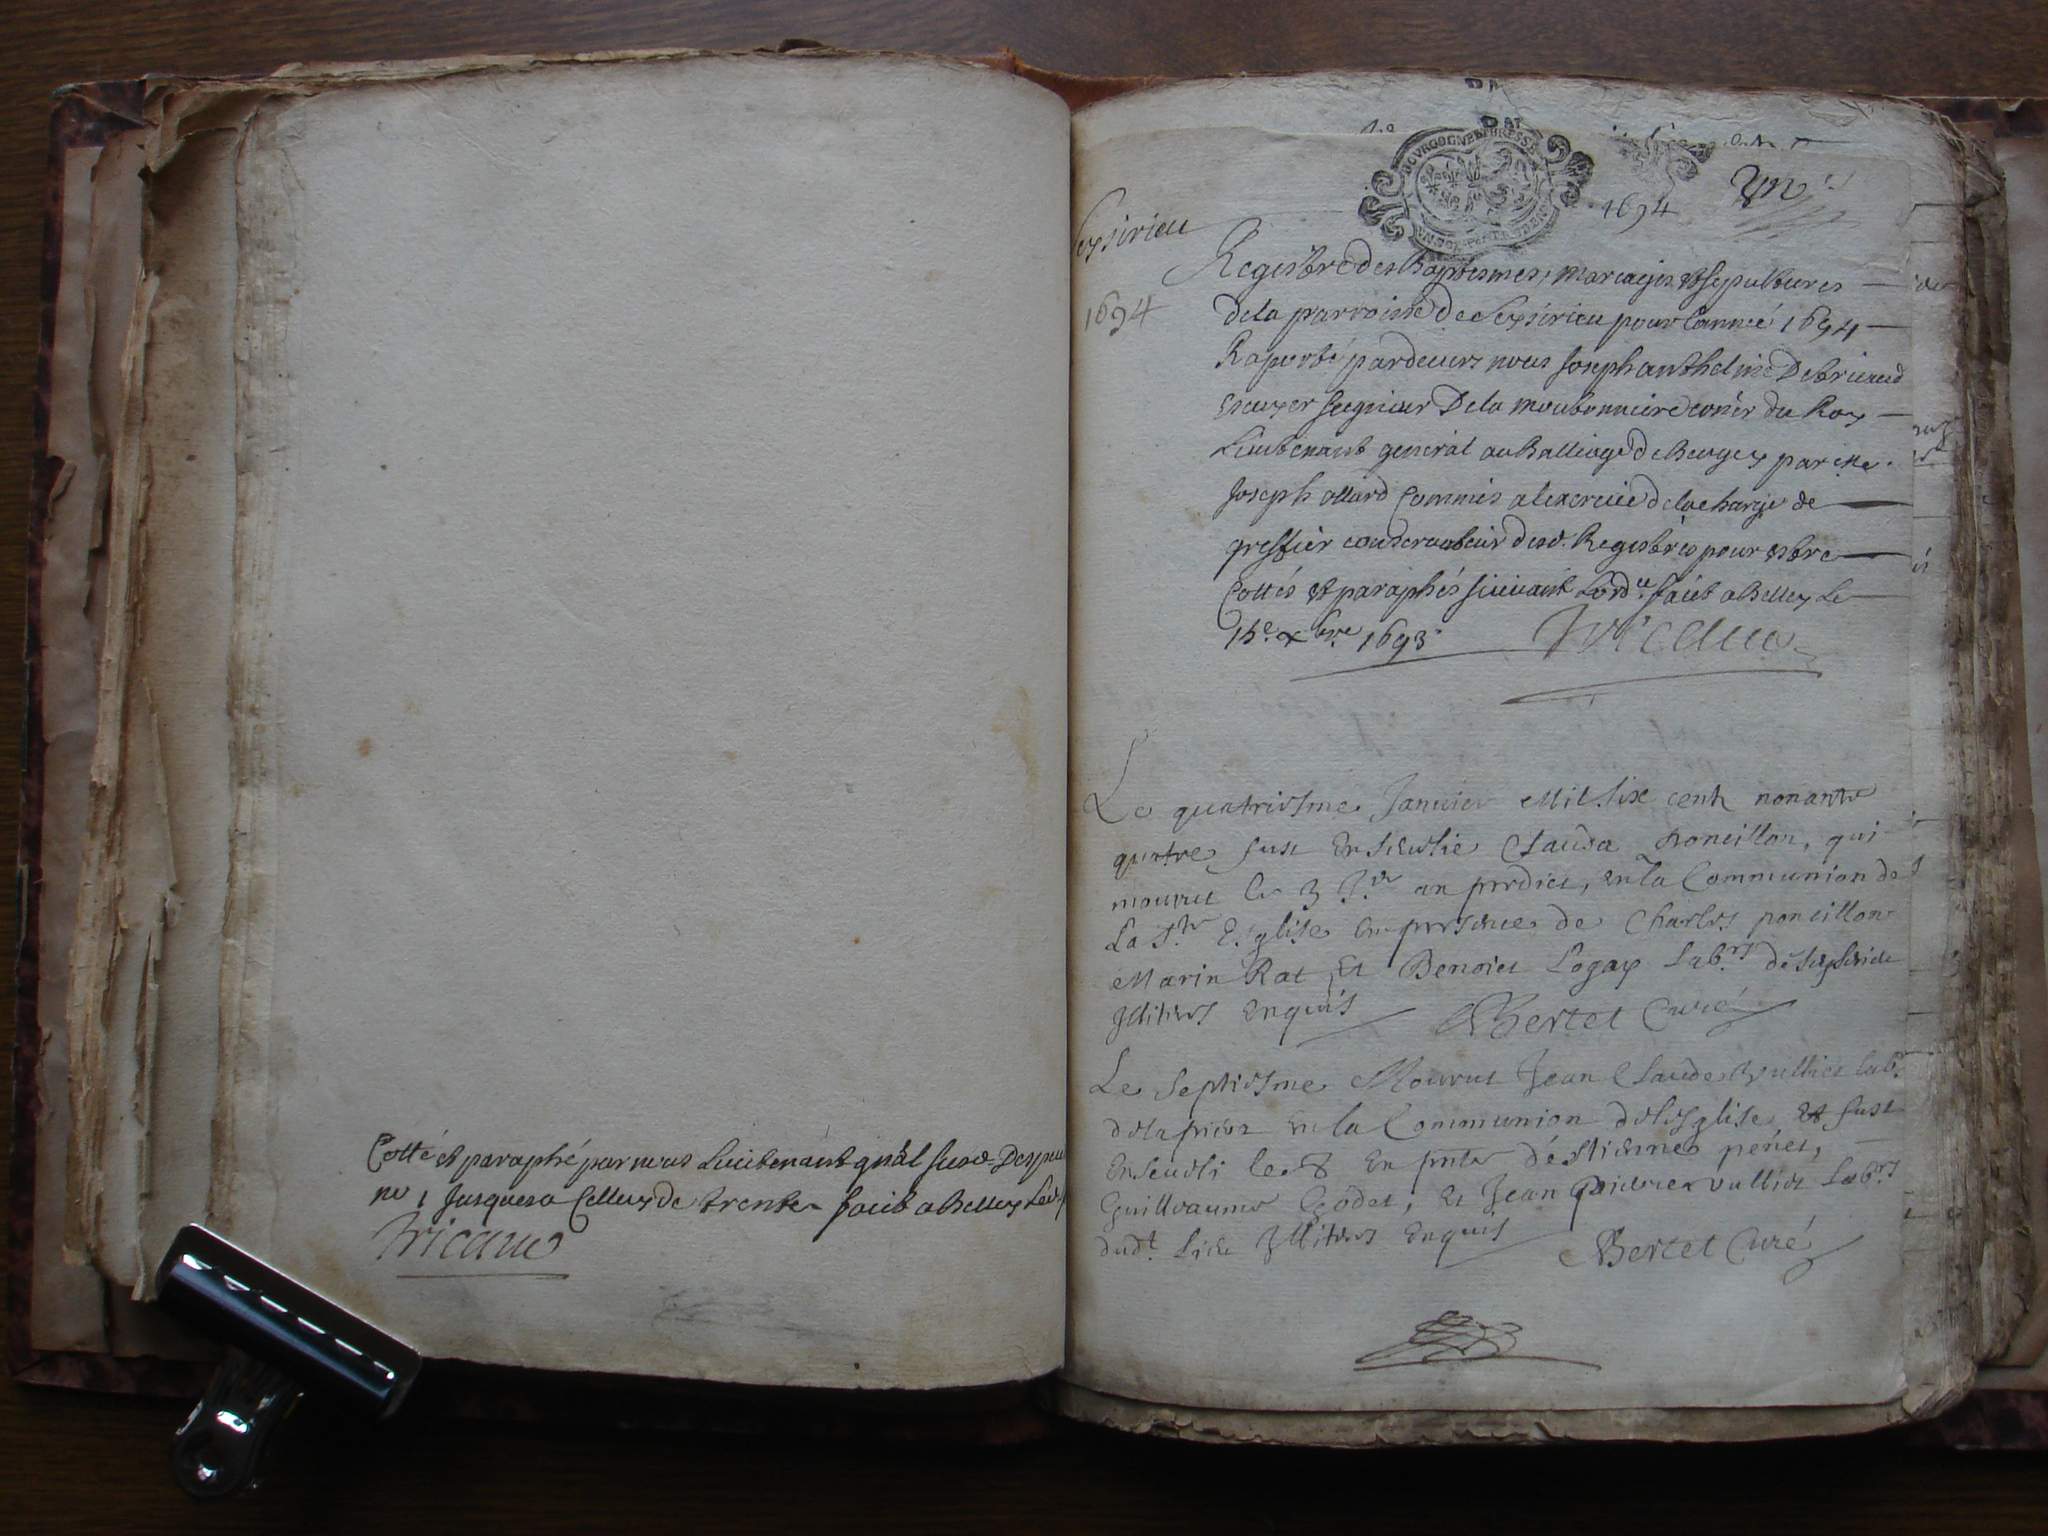 Cotté et paraphé par nous Lieutenant gnâl susd.
Jusques a Celluy de trente faict a Belley Led.
Tricaud
Seyssirieu
1694
BOVRGOGNE ET BRESSE
1694
Un
Registre des Baptesmes, mariages et sepultures
de la parroisse de Seyssirieu pour l'année 1694
Raporté pardevers nous Joseph anthelme De tricaud
escuyer seigneur De la moutonniere coner du Roy
Lieutenant general au Balliage de Beugey par me
Joseph ollard Commis a lexercice de la charge de
greffier conservateur desd. Registres pour estre
Cottés et paraphés suivant Lord.ce faict a Belley Le
15e xbre 1693
Tricaud
Le quatriesme Janvier Mil six cent nonante
quatre fust Enseveslie Clauda poncillon, qui
mourut le 3 J.er an predict, en la Communion de
La S.te Esglise en presence de Charles poncillon
Marin Rat Et Benoict Logay Lab.rs de Seyssirieu
Illiteres Enquis
Bertet Curé
Le Septiesme Mourut Jean Claude Vullies lab.r
en la Communion de lesglise Et fust
Enseveli le 8 En pnce d'éstienne peret,
Guilleaume Godet, Et Jean vullies Lab.rs
dud.t Lieu Illiteres Enquis
Bertet Curé